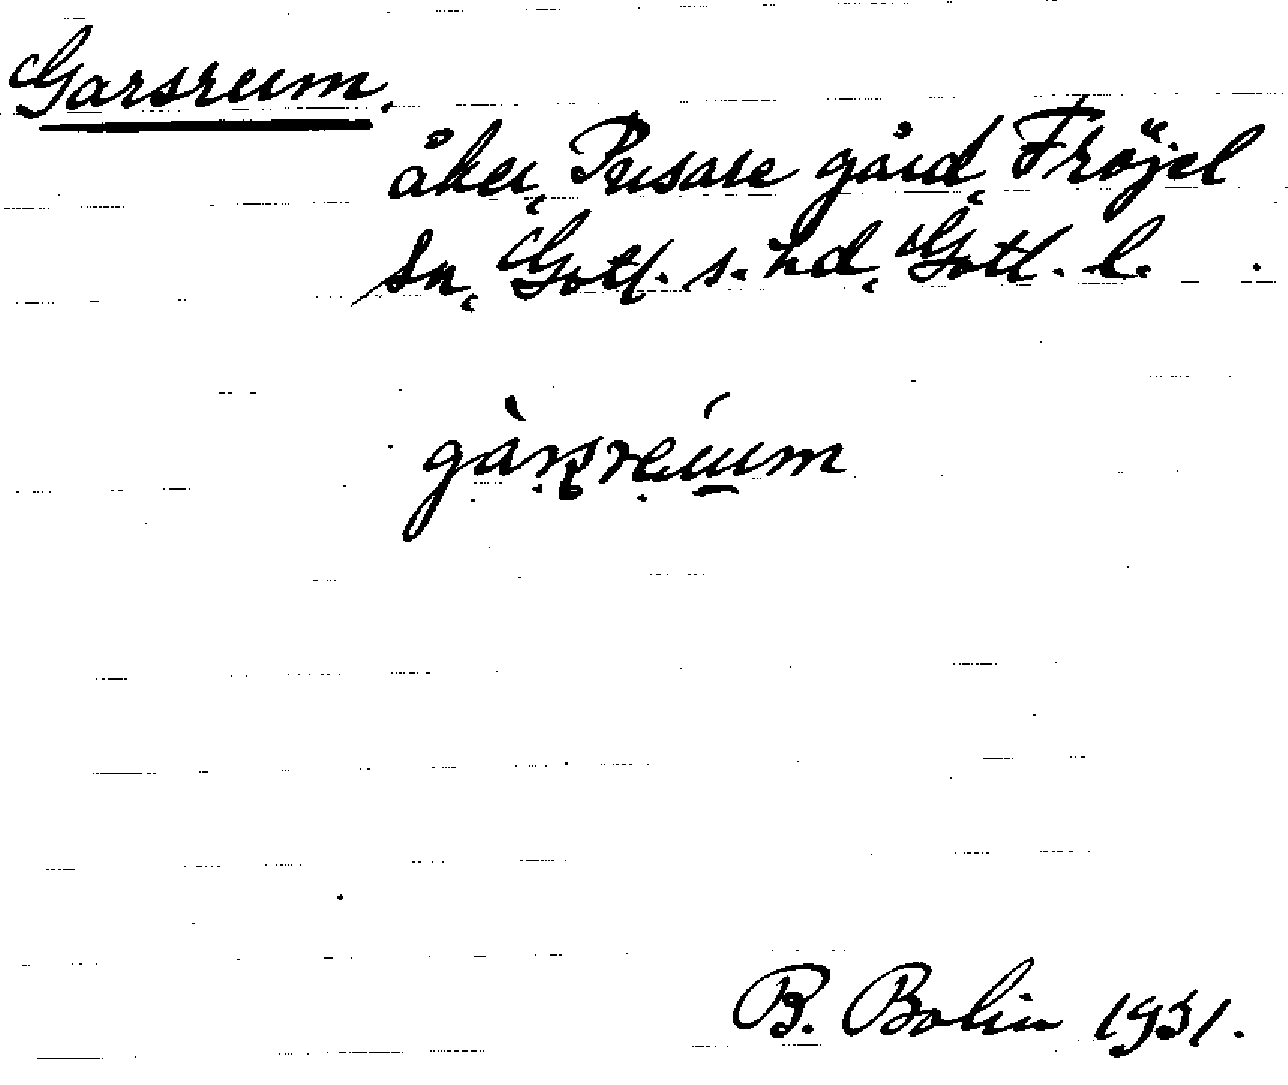 Garsreum.
åker, Prusare gård, Fröjel
sn, Gotl. s. hd, Gotl. l.
gàrsreúum
B. Bolin 1931.